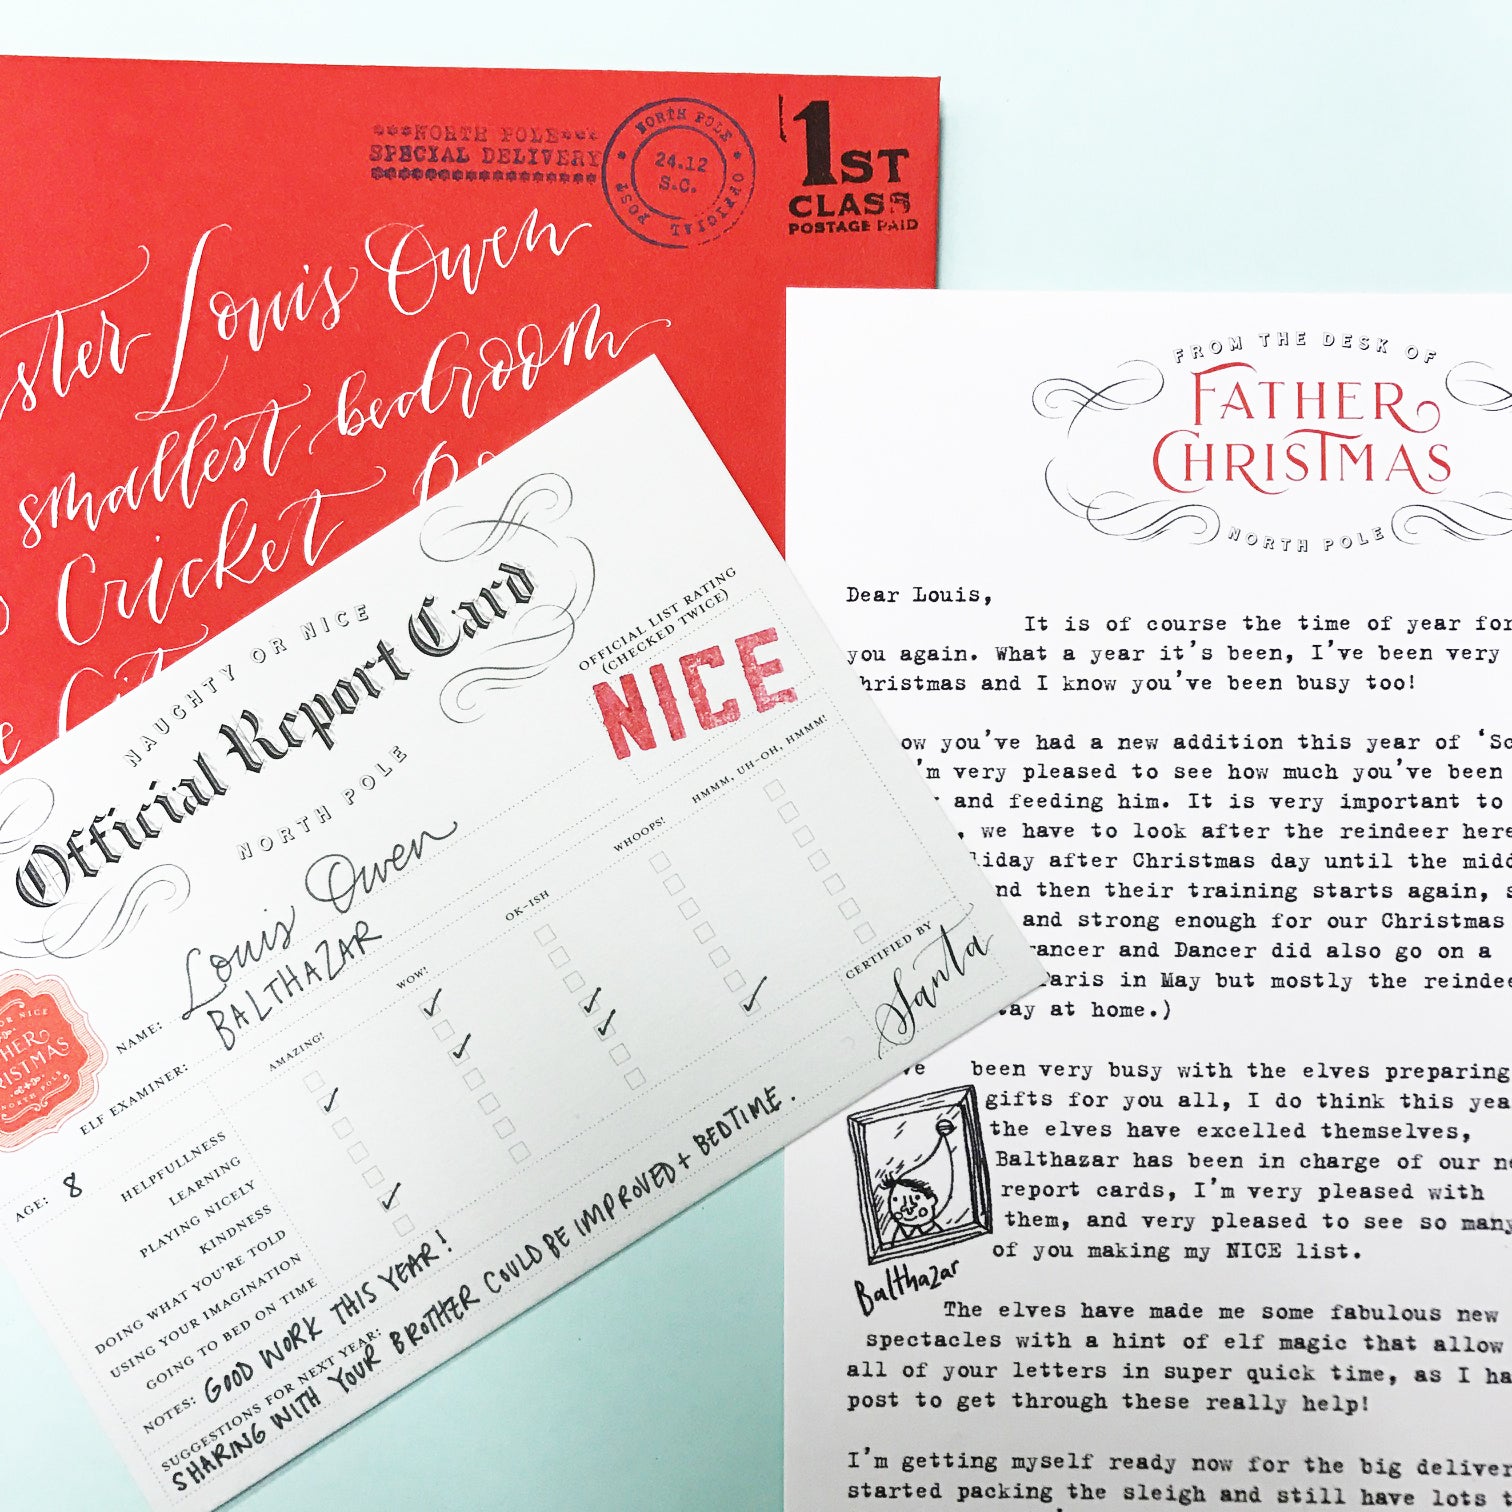 ***NORTH POLE***
SPECIAL DELIVERY
NORTH POLE
OFFICIAL POST
24.12
S.C.
1ST
CLASS
POSTAGE PAID
Louis Owen
smallest bedroom
Cricket
NAUGHTY OR NICE
Official Report Card
NORTH POLE
OFFICIAL LIST RATING
(CHECKED TWICE)
NICE
NAME: Louis Owen
ELF EXAMINER: BALTHAZAR
AGE: 8
AMAZING!
WOW!
OK-ISH
WHOOPS!
HMMM, UH-OH, HMMM!
HELPFULLNESS
LEARNING
PLAYING NICELY
KINDNESS
DOING WHAT YOU'RE TOLD
USING YOUR IMAGINATION
GOING TO BED ON TIME
CERTIFIED BY
Santa
NOTES: GOOD WORK THIS YEAR!
SUGGESTIONS FOR NEXT YEAR:
SHARING WITH YOUR BROTHER COULD BE IMPROVED + BEDTIME.
OR NICE
CHRISTMAS
FROM THE DESK OF
FATHER
CHRISTMAS
NORTH POLE
Dear Louis,
It is of course the time of year for
you again. What a year it's been, I've been very
hristmas and I know you've been busy too!
ow you've had a new addition this year of
'm very pleased to see how much you've been
and feeding him. It is very important to
, we have to look after the reindeer here
liday after Christmas day until the
nd then their training starts again,
and strong enough for our Christmas
rancer and Dancer did also go on a
aris in May but mostly the
ay at home.)
've been very busy with the elves preparing
gifts for you all, I do think this
the elves have excelled themselves,
Balthazar has been in charge of our
report cards, I'm very pleased with
them, and very pleased to see so many
of you making my NICE list.
Balthazar
The elves have made me some fabulous new
spectacles with a hint of elf magic that allow
all of your letters in super quick time, as I
post to get through these really help!
I'm getting myself ready now for the big
started packing the sleigh and still have lots